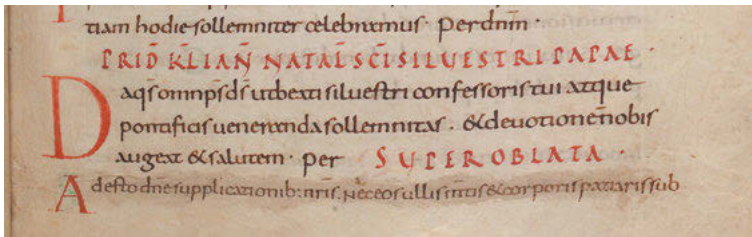 tiam hodie sollemniter celebramus · Per dnm̄ ·
PRID̄ K̄L IAN̄ NATAL̄ SC̄I SILUESTRI PAPAE ·
Da qs̄ omnps̄ ds̄ ut beati siluestri confessoris tui atque
pontificis ueneranda sollemnitas · & deuotionē nobis
augeat & salutem · per SUPER OBLATA ·
Adesto dn̄e supplicationib: nr̄is. nec eos ullis mentis & corporis patiaris sub